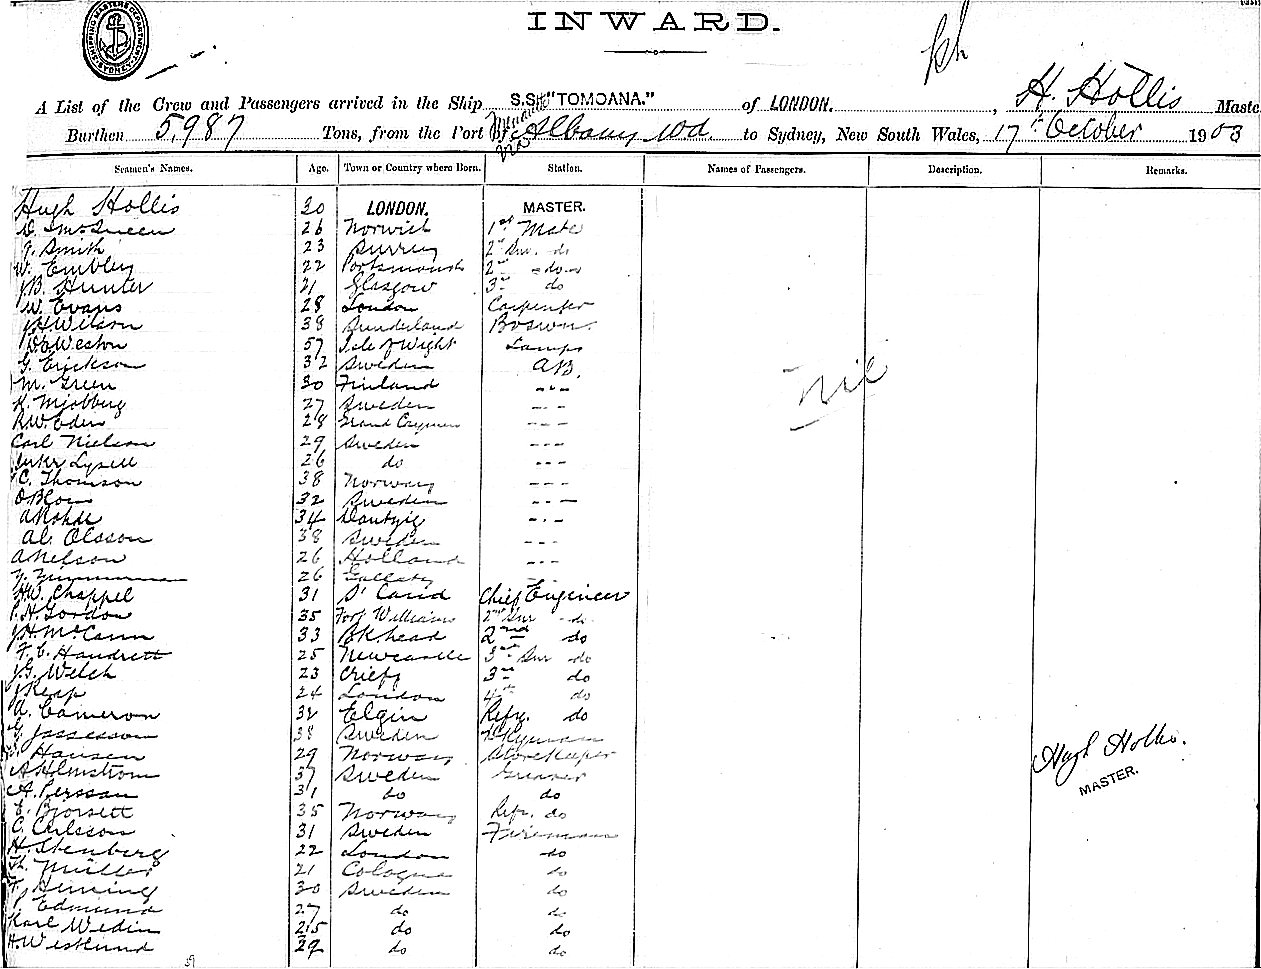 SHIPPING MASTERS DEPARTMENT SYDNEY
INWARD.
A List of the Crew and Passengers arrived in the Ship S.S. "TOMOANA." of LONDON. , H. Hollis Maste
Burthen 5,987 Tons, from the Port of Albany to Sydney, New South Wales, 17th October 1903
Seamen's Names. Age. Town or Country where Born. Station. Names of Passengers. Description. Remarks.
Hugh Hollis 30 LONDON. MASTER.
D. McQueen 26 Norwich 1st Mate
Smith 23 Surrey 2nd Snr. do
W. Embley 22 Portsmouth 2nd do
J.B. Hunter 21 Glasgow 3rd do
W. Evans 28 London Carpenter
J H Wilson 38 Sunderland Boswn.
Weston 57 Isle of Wight Lamps
G. Erickson 32 Sweden AB.
M. Green 30 Finland - - -
K. Mjobbug 27 Sweden - - -
R.W. Eden 28 Grand Caymen - - -
Carl Nielson 29 Sweden - - -
Lysell 26 do - - -
C. Thomson 38 Norway - - -
O Blom 32 Sweden - - -
A Rohde 34 Dantzig - - -
Al. Olsson 38 Sweden - - -
A Nelson 26 Holland - - -
26
H.W. Chappel 31 Chief Engineer
P.H. Gordon 35 Fort William 2nd Snr do
J H McCann 33 Bkhead 2nd do
F. C. Handrett 25 Newcastle 3rd Snr do
J.G. Welch 23 Crieff 3rd do
J Reap 24 London 4th do
A. Cameron 32 Elgin Refr. do
G. 38 Sweden
Hansen 29 Norway Storekeeper
A Holmstrom 37 Sweden Greaser
A. Perssan 31 do do
E. Bjorsett 35 Norway Refr. do
C. Carlsson 31 Sweden Fireman
H. Stenberg 22 London do
Müller 21 Cologne do
30 Sweden do
Edmund 27 do do
Karl Wedin 25 do do
H. Westlund 29 do do
Nil
Hugh Hollis.
MASTER.